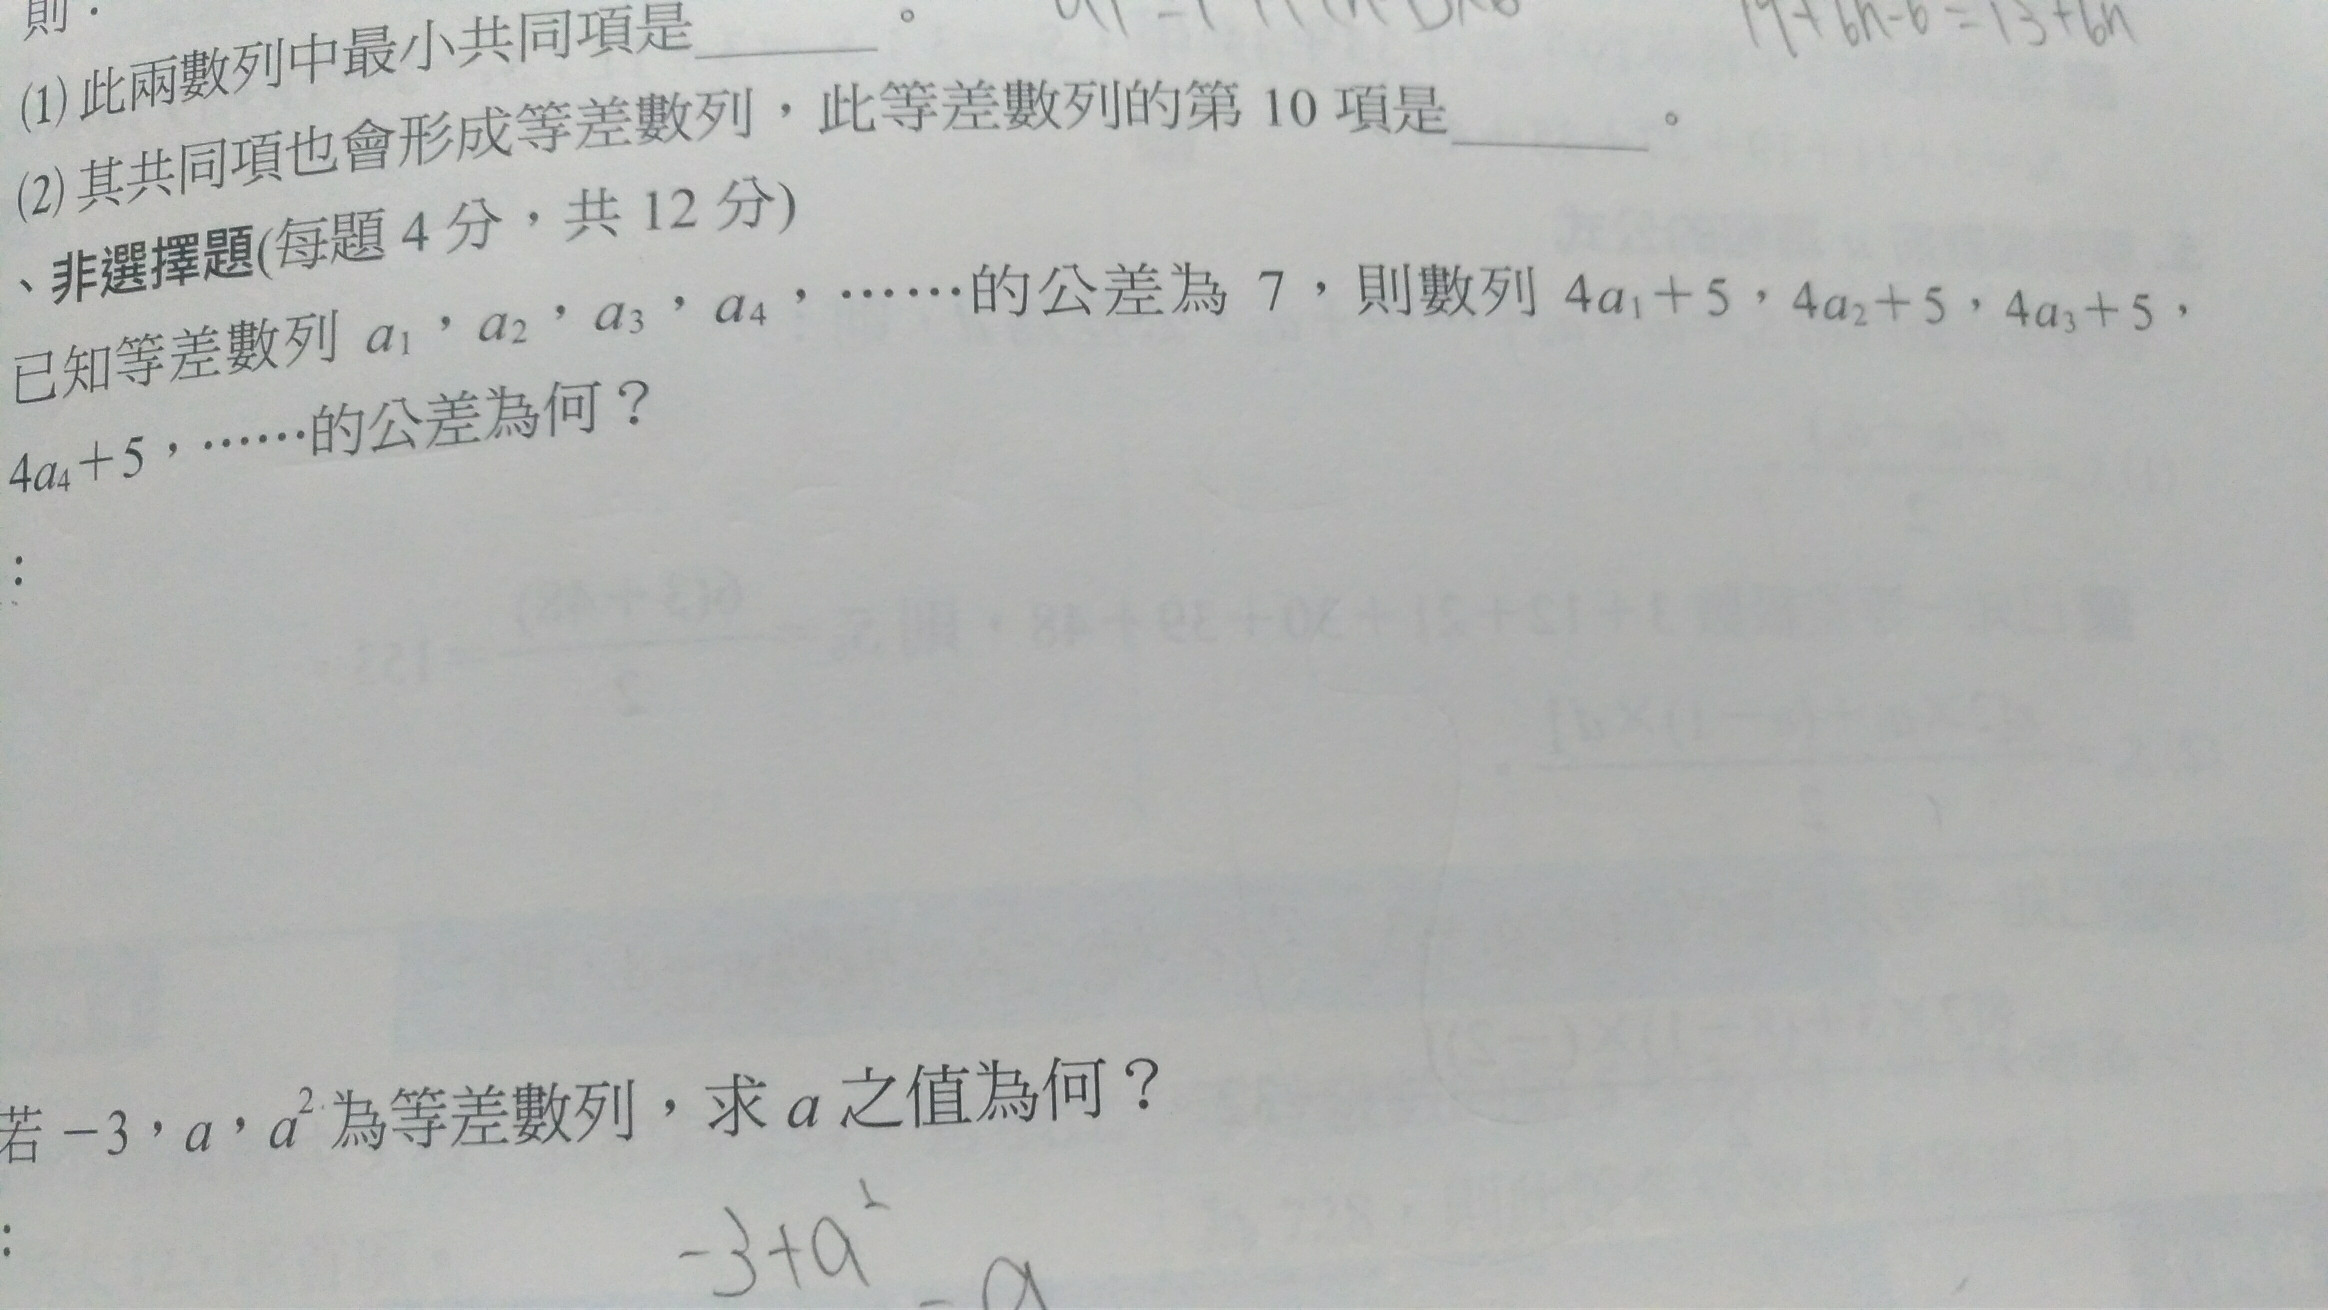 則：
(1) 此兩數列中最小共同項是______。
19+6n-6=13+6n
(2) 其共同項也會形成等差數列，此等差數列的第 10 項是______。
、非選擇題(每題 4 分，共 12 分)
已知等差數列 a₁，a₂，a₃，a₄，……的公差為 7，則數列 4a₁+5，4a₂+5，4a₃+5，
4a₄+5，……的公差為何？
：
若 -3，a，a² 為等差數列，求 a 之值為何？
：
-3+a²
= a